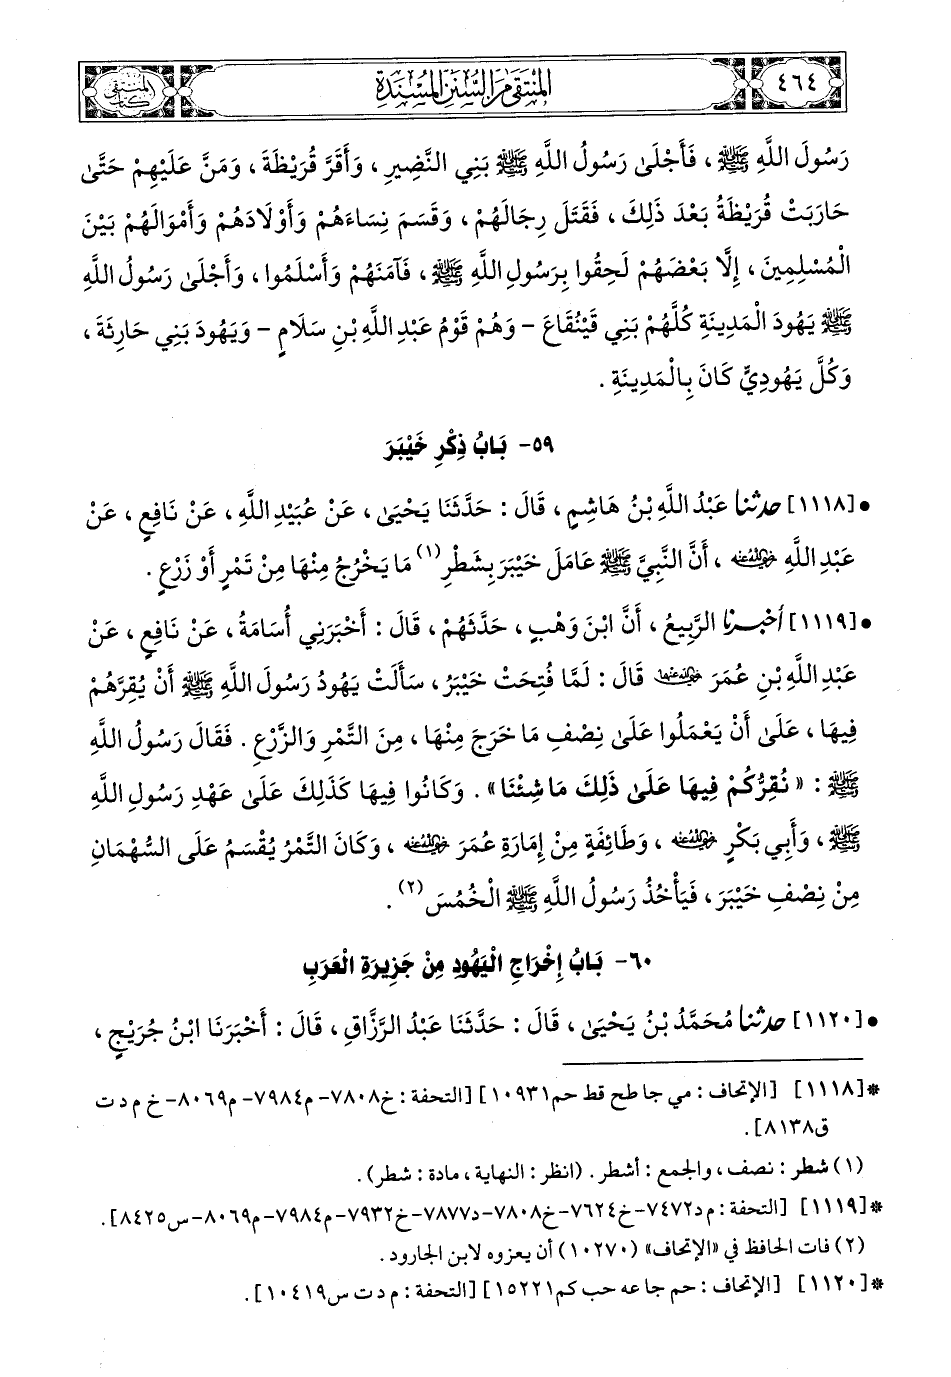 ٤٦٤
المنتقى من السنن المسندة
كتاب المنتقى
رَسُولَ اللَّهِ ﷺ ، فَأَجْلَى رَسُولُ اللَّهِ ﷺ بَنِي النَّضِيرِ ، وَأَقَرَّ قُرَيْظَةَ ، وَمَنَّ عَلَيْهِمْ حَتَّى
حَارَبَتْ قُرَيْظَةُ بَعْدَ ذَلِكَ ، فَقَتَلَ رِجَالَهُمْ ، وَقَسَمَ نِسَاءَهُمْ وَأَوْلَادَهُمْ وَأَمْوَالَهُمْ بَيْنَ
الْمُسْلِمِينَ ، إِلَّا بَعْضَهُمْ لَحِقُوا بِرَسُولِ اللَّهِ ﷺ ، فَآمَنَهُمْ وَأَسْلَمُوا ، وَأَجْلَى رَسُولُ اللَّهِ
ﷺ يَهُودَ الْمَدِينَةِ كُلَّهُمْ بَنِي قَيْنُقَاعَ – وَهُمْ قَوْمُ عَبْدِ اللَّهِ بْنِ سَلَامٍ – وَيَهُودَ بَنِي حَارِثَةَ ،
وَكُلَّ يَهُودِيٍّ كَانَ بِالْمَدِينَةِ .
٥٩- بَابُ ذِكْرِ خَيْبَرَ
• [١١١٨] حدثنا عَبْدُ اللَّهِ بْنُ هَاشِمٍ ، قَالَ : حَدَّثَنَا يَحْيَى ، عَنْ عُبَيْدِ اللَّهِ ، عَنْ نَافِعٍ ، عَنْ
عَبْدِ اللَّهِ رضي الله عنه ، أَنَّ النَّبِيَّ ﷺ عَامَلَ خَيْبَرَ بِشَطْرِ (١) مَا يَخْرُجُ مِنْهَا مِنْ تَمْرٍ أَوْ زَرْعٍ .
• [١١١٩] أخبرنا الرَّبِيعُ ، أَنَّ ابْنَ وَهْبٍ ، حَدَّثَهُمْ ، قَالَ : أَخْبَرَنِي أُسَامَةُ ، عَنْ نَافِعٍ ، عَنْ
عَبْدِ اللَّهِ بْنِ عُمَرَ رضي الله عنهما قَالَ : لَمَّا فُتِحَتْ خَيْبَرُ ، سَأَلَتْ يَهُودُ رَسُولَ اللَّهِ ﷺ أَنْ يُقِرَّهُمْ
فِيهَا ، عَلَى أَنْ يَعْمَلُوا عَلَى نِصْفِ مَا خَرَجَ مِنْهَا ، مِنَ التَّمْرِ وَالزَّرْعِ . فَقَالَ رَسُولُ اللَّهِ
ﷺ : « نُقِرُّكُمْ فِيهَا عَلَى ذَلِكَ مَا شِئْنَا » . وَكَانُوا فِيهَا كَذَلِكَ عَلَى عَهْدِ رَسُولِ اللَّهِ
ﷺ ، وَأَبِي بَكْرٍ رضي الله عنه ، وَطَائِفَةٍ مِنْ إِمَارَةِ عُمَرَ رضي الله عنه ، وَكَانَ التَّمْرُ يُقْسَمُ عَلَى السُّهْمَانِ
مِنْ نِصْفِ خَيْبَرَ ، فَيَأْخُذُ رَسُولُ اللَّهِ ﷺ الْخُمُسَ (٢) .
٦٠- بَابُ إِخْرَاجِ الْيَهُودِ مِنْ جَزِيرَةِ الْعَرَبِ
• [١١٢٠] حدثنا مُحَمَّدُ بْنُ يَحْيَى ، قَالَ : حَدَّثَنَا عَبْدُ الرَّزَّاقِ ، قَالَ : أَخْبَرَنَا ابْنُ جُرَيْجٍ ،
* [١١١٨] [الإتحاف : مي جا طح قط حم ١٠٩٣١] [التحفة : خ٧٨٠٨- م٧٩٨٤- م٨٠٦٩- خ م د ت
ق٨١٣٨] .
(١) شطر : نصف ، والجمع : أشطر . (انظر : النهاية ، مادة : شطر) .
* [١١١٩] [التحفة : م د٧٤٧٢- خ٧٦٢٤- خ٧٨٠٨- د٧٨٧٧- خ٧٩٣٢- م٧٩٨٤- م٨٠٦٩- س٨٤٢٥] .
(٢) فات الحافظ في «الإتحاف» (١٠٢٧٠) أن يعزوه لابن الجارود .
* [١١٢٠] [الإتحاف : حم جا عه حب كم١٥٢٢١] [التحفة : م د ت س١٠٤١٩] .